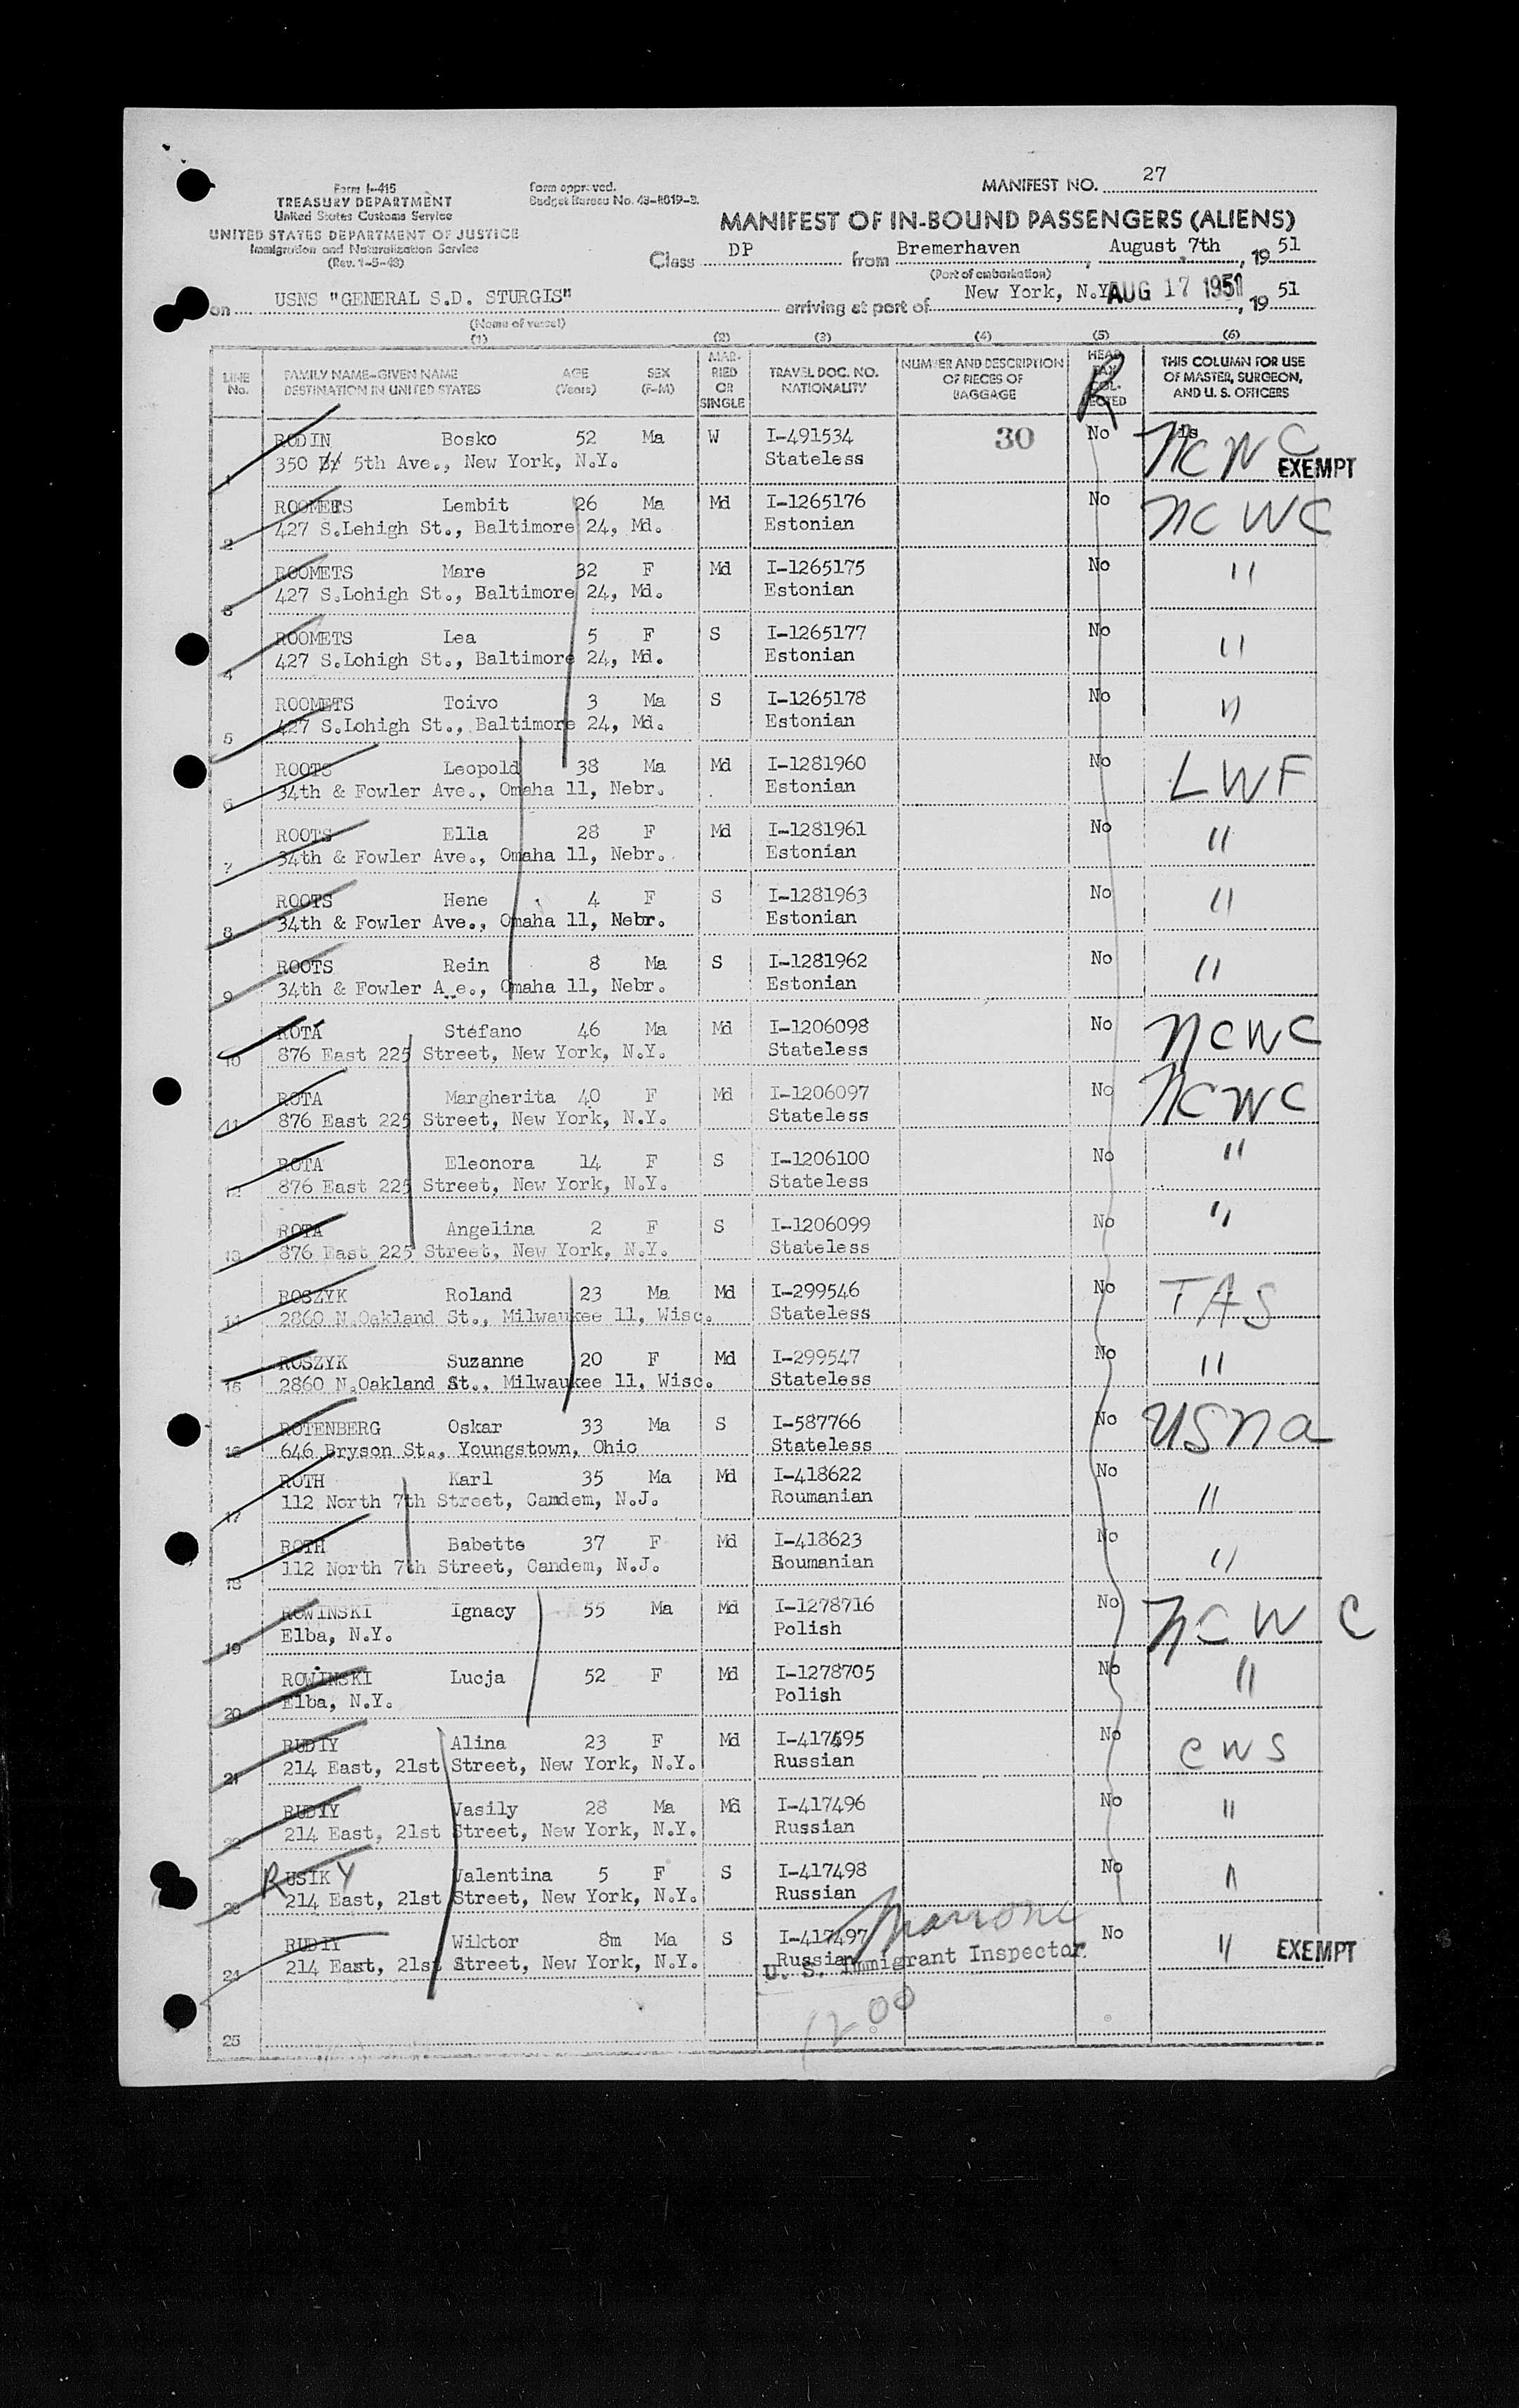 MANIFEST NO. 27
Form I-415
TREASURY DEPARTMENT
United States Customs Service
UNITED STATES DEPARTMENT OF JUSTICE
Immigration and Naturalization Service
(Rev. 1-5-48)
Form approved.
Budget Bureau No. 43-R019-3.
MANIFEST OF IN-BOUND PASSENGERS (ALIENS)
Class DP from Bremerhaven, August 7th, 1951
(Port of embarkation)
on USNS "GENERAL S.D. STURGIS" arriving at port of New York, N.Y. AUG 17 1951, 1951
(Name of vessel)
(1) (2) (3) (4) (5) (6)
LINE No. FAMILY NAME-GIVEN NAME DESTINATION IN UNITED STATES AGE (Years) SEX (F-M) MARRIED OR SINGLE TRAVEL DOC. NO. NATIONALITY NUMBER AND DESCRIPTION OF PIECES OF BAGGAGE HEAD TAX COLLECTED THIS COLUMN FOR USE OF MASTER, SURGEON, AND U. S. OFFICERS
R
1 RODIN Bosko 52 Ma W I-491534 30 No NCWC
350 5th Ave., New York, N.Y. Stateless EXEMPT
2 ROOMETS Lembit 26 Ma Md I-1265176 No NCWC
427 S.Lehigh St., Baltimore 24, Md. Estonian
3 ROOMETS Mare 32 F Md I-1265175 No "
427 S.Lohigh St., Baltimore 24, Md. Estonian
4 ROOMETS Lea 5 F S I-1265177 No "
427 S.Lohigh St., Baltimore 24, Md. Estonian
5 ROOMETS Toivo 3 Ma S I-1265178 No "
427 S.Lohigh St., Baltimore 24, Md. Estonian
6 ROOTS Leopold 38 Ma Md I-1281960 No LWF
34th & Fowler Ave., Omaha 11, Nebr. Estonian
7 ROOTS Ella 28 F Md I-1281961 No "
34th & Fowler Ave., Omaha 11, Nebr. Estonian
8 ROOTS Hene 4 F S I-1281963 No "
34th & Fowler Ave., Omaha 11, Nebr. Estonian
9 ROOTS Rein 8 Ma S I-1281962 No "
34th & Fowler A.e., Omaha 11, Nebr. Estonian
10 ROTA Stefano 46 Ma Md I-1206098 No NCWC
876 East 225 Street, New York, N.Y. Stateless
11 ROTA Margherita 40 F Md I-1206097 No NCWC
876 East 225 Street, New York, N.Y. Stateless
12 ROTA Eleonora 14 F S I-1206100 No "
876 East 225 Street, New York, N.Y. Stateless
13 ROTA Angelina 2 F S I-1206099 No "
876 East 225 Street, New York, N.Y. Stateless
14 ROSZYK Roland 23 Ma Md I-299546 No TAS
2860 N.Oakland St., Milwaukee 11, Wisc. Stateless
15 ROSZYK Suzanne 20 F Md I-299547 No "
2860 N.Oakland St., Milwaukee 11, Wisc. Stateless
16 ROTENBERG Oskar 33 Ma S I-587766 No USNA
646 Bryson St., Youngstown, Ohio Stateless
17 ROTH Karl 35 Ma Md I-418622 No "
112 North 7th Street, Camdem, N.J. Roumanian
18 ROTH Babette 37 F Md I-418623 No "
112 North 7th Street, Candem, N.J. Roumanian
19 ROWINSKI Ignacy 55 Ma Md I-1278716 No NCWC
Elba, N.Y. Polish
20 ROWINSKI Lucja 52 F Md I-1278705 No "
Elba, N.Y. Polish
21 RUDIY Alina 23 F Md I-417495 No CWS
214 East, 21st Street, New York, N.Y. Russian
22 RUDIY Vasily 28 Ma Md I-417496 No "
214 East, 21st Street, New York, N.Y. Russian
23 RUSIKY Valentina 5 F S I-417498 No "
214 East, 21st Street, New York, N.Y. Russian
24 RUDIY Wiktor 8m Ma S I-417497 No " EXEMPT
214 East, 21st Street, New York, N.Y. Russian
U. S. Immigrant Inspector
25